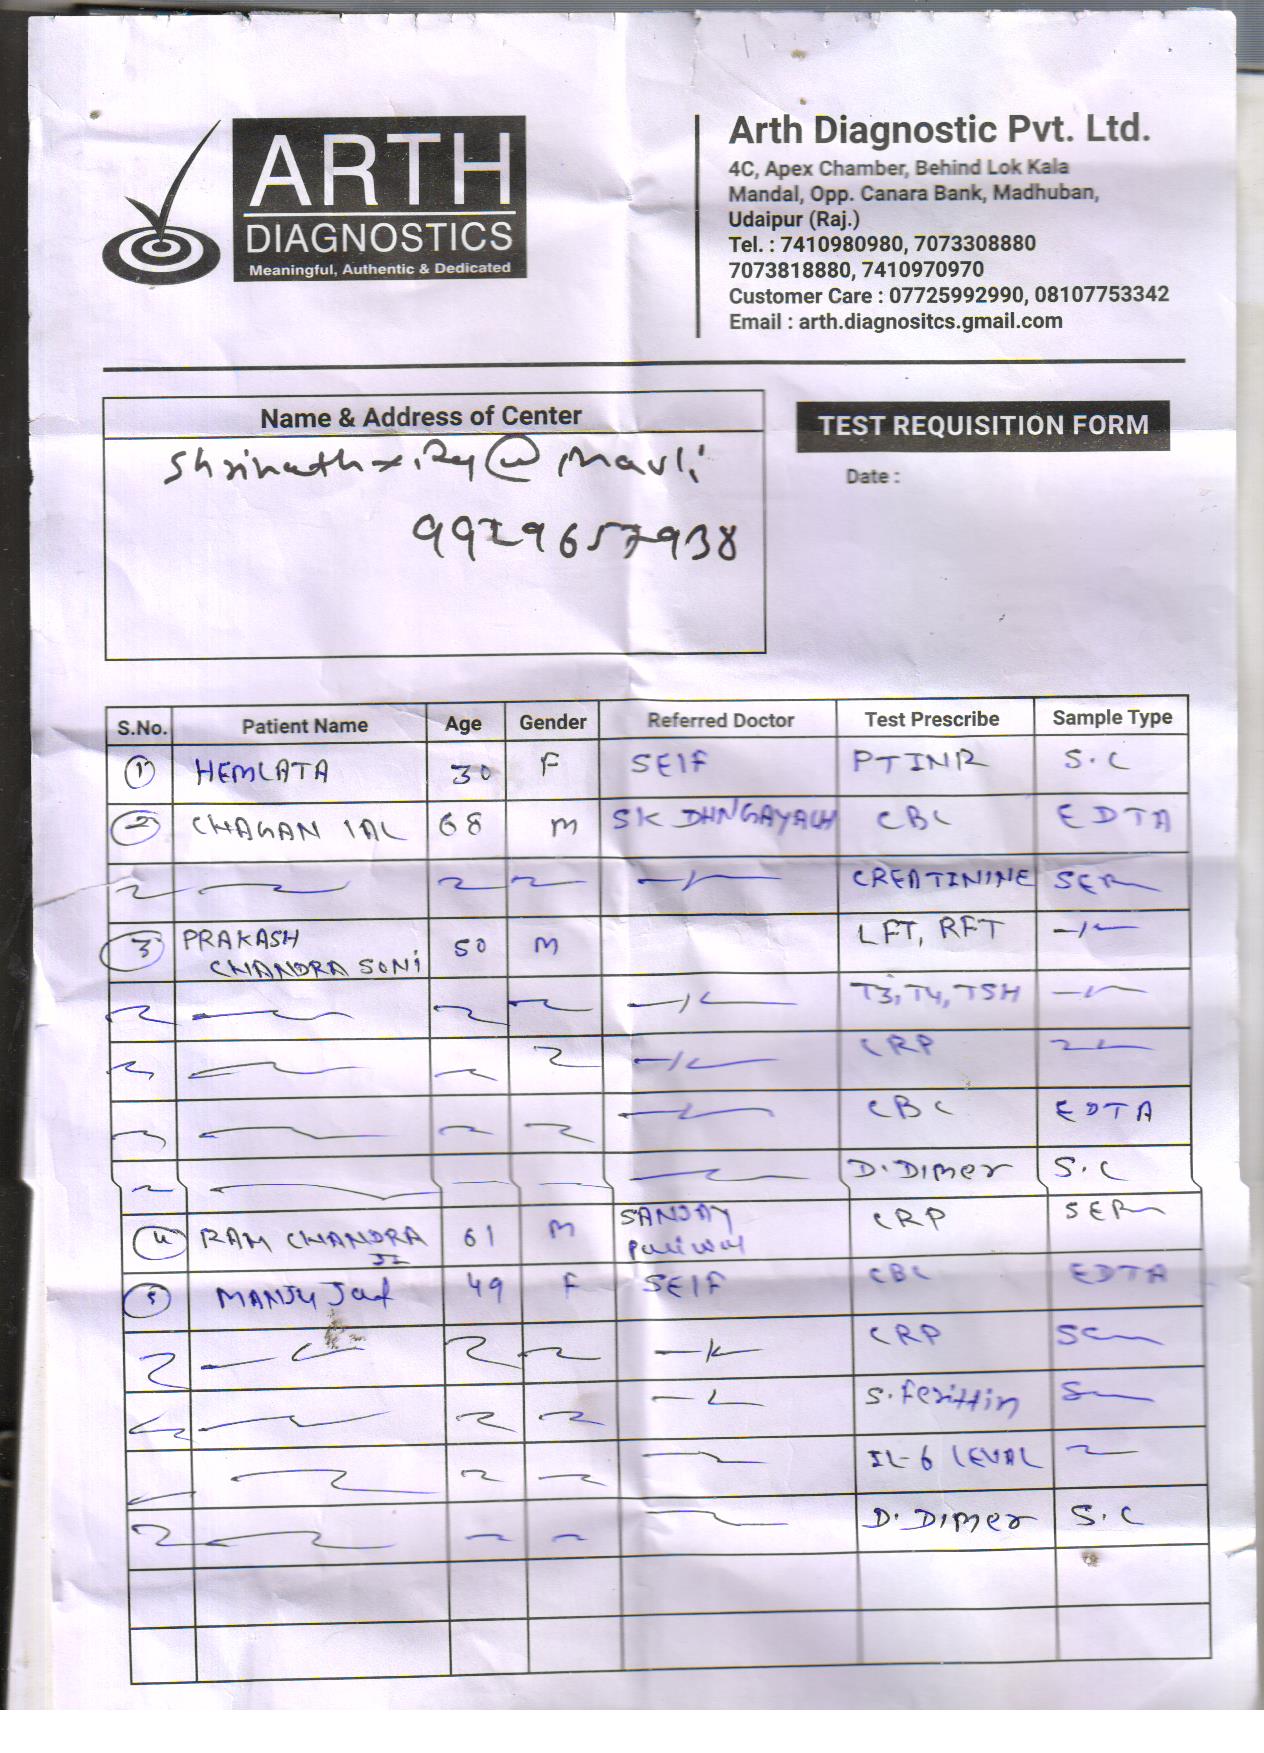 ARTH
DIAGNOSTICS
Meaningful, Authentic & Dedicated
Arth Diagnostic Pvt. Ltd.
4C, Apex Chamber, Behind Lok Kala
Mandal, Opp. Canara Bank, Madhuban,
Udaipur (Raj.)
Tel. : 7410980980, 7073308880
7073818880, 7410970970
Customer Care : 07725992990, 08107753342
Email : arth.diagnositcs.gmail.com
Name & Address of Center
@ Mavli
9929657938
TEST REQUISITION FORM
Date :
S.No. Patient Name Age Gender Referred Doctor Test Prescribe Sample Type
1 HEMLATA 30 F SELF PTINR S.C
2 CHAGAN LAL 68 M SK CBC EDTA
CREATININE SER
3 PRAKASH CHANDRA SONI 50 M LFT, RFT
T3, T4, TSH
CRP
CBC EDTA
D.Dimer S.C
4 RAM CHANDRA 61 M SANJAY CRP SER
5 MANJU 49 F SELF CBC EDTA
CRP
S. Ferittin
IL-6 LEVAL
D.Dimer S.C